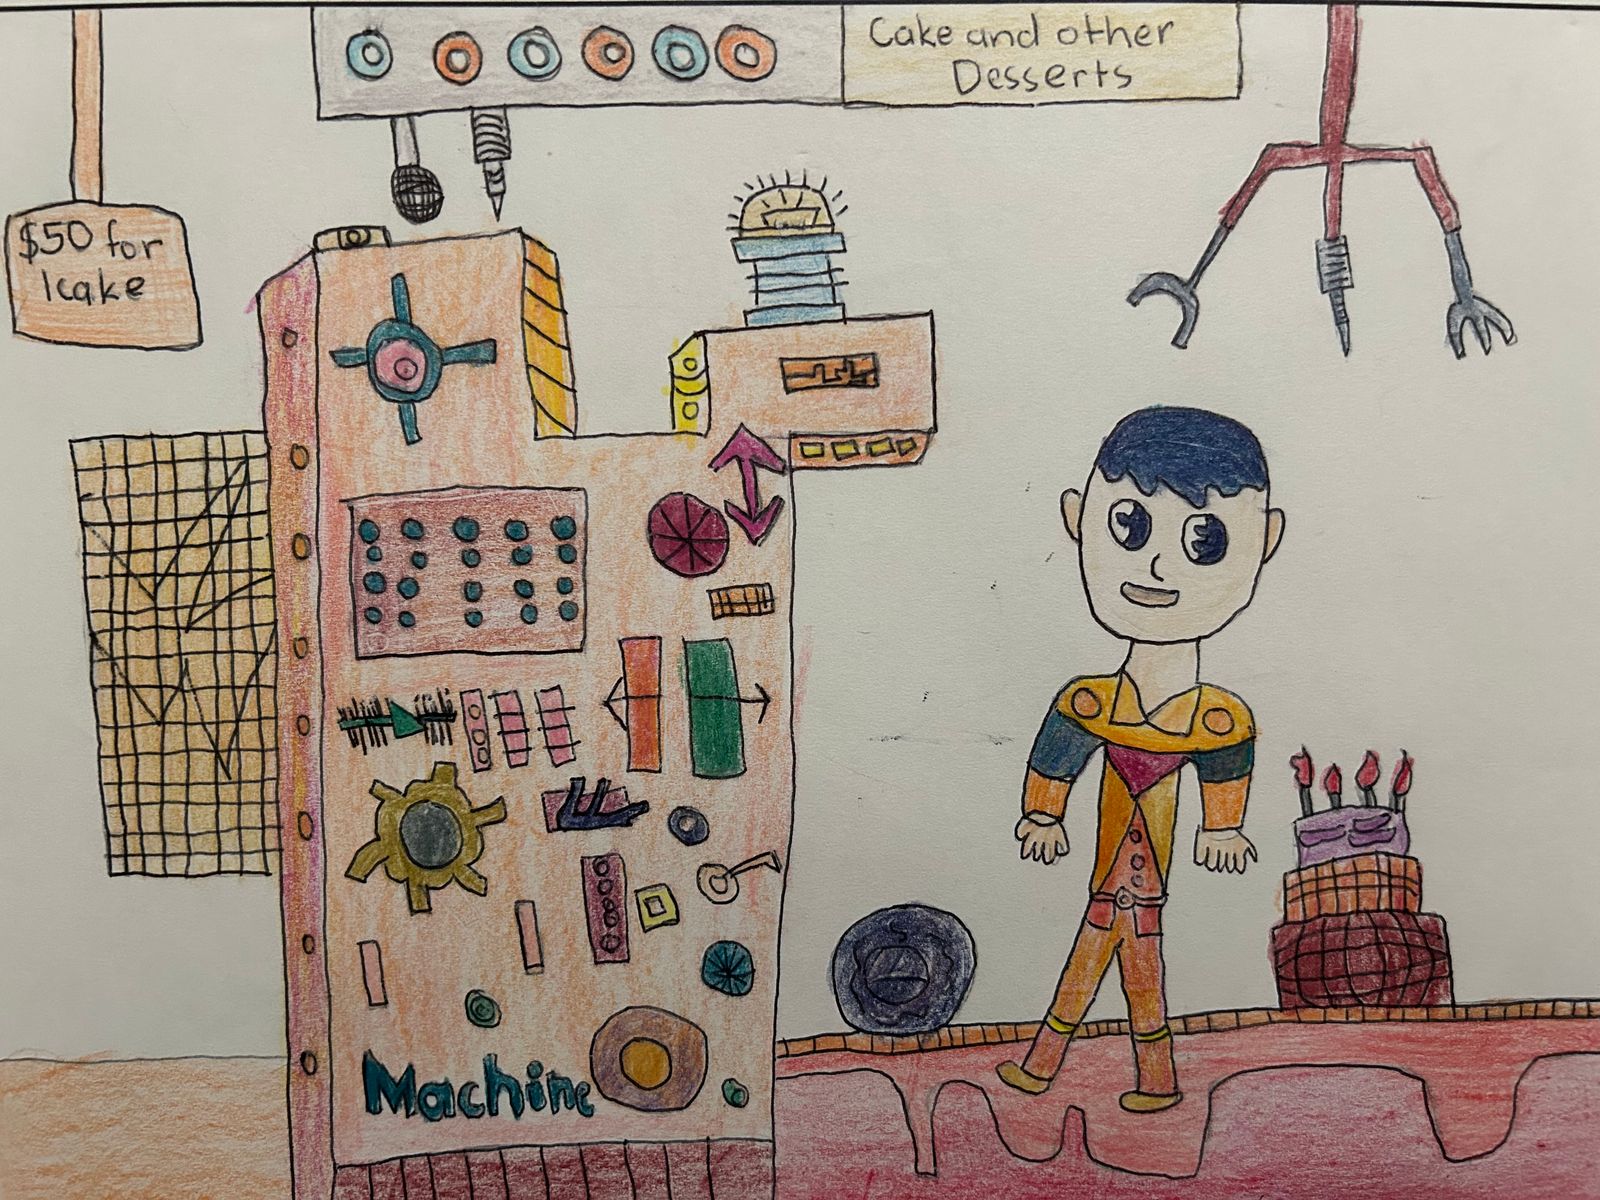 Cake and other
Desserts
$50 for
1cake
Machine